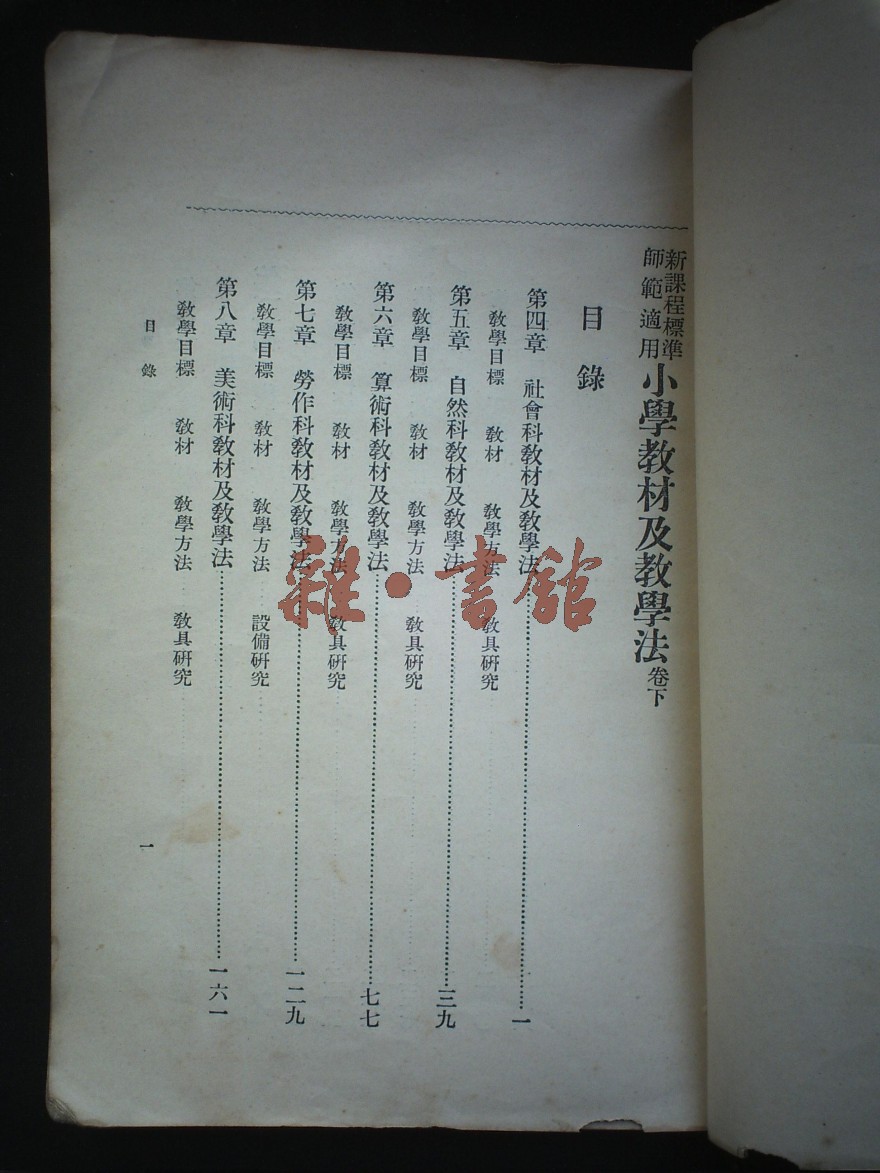 新課程標準
師範適用
小學教材及教學法卷下
目錄
第四章 社會科教材及教學法………一
教學目標 教材 教學方法 教具研究
第五章 自然科教材及教學法………三九
教學目標 教材 教學方法 教具研究
第六章 算術科教材及教學法………七七
教學目標 教材 教學方法 教具研究
第七章 勞作科教材及教學法………一二九
教學目標 教材 教學方法 設備研究
第八章 美術科教材及教學法………一六一
教學目標 教材 教學方法 教具研究
目錄
一
雜·書館